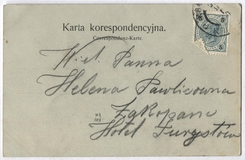 Karta korespondencyjna.
Correspondenz-Karte
W. il. Panna
Helena Pawlicowna
Zakopane
Hotel Turystów